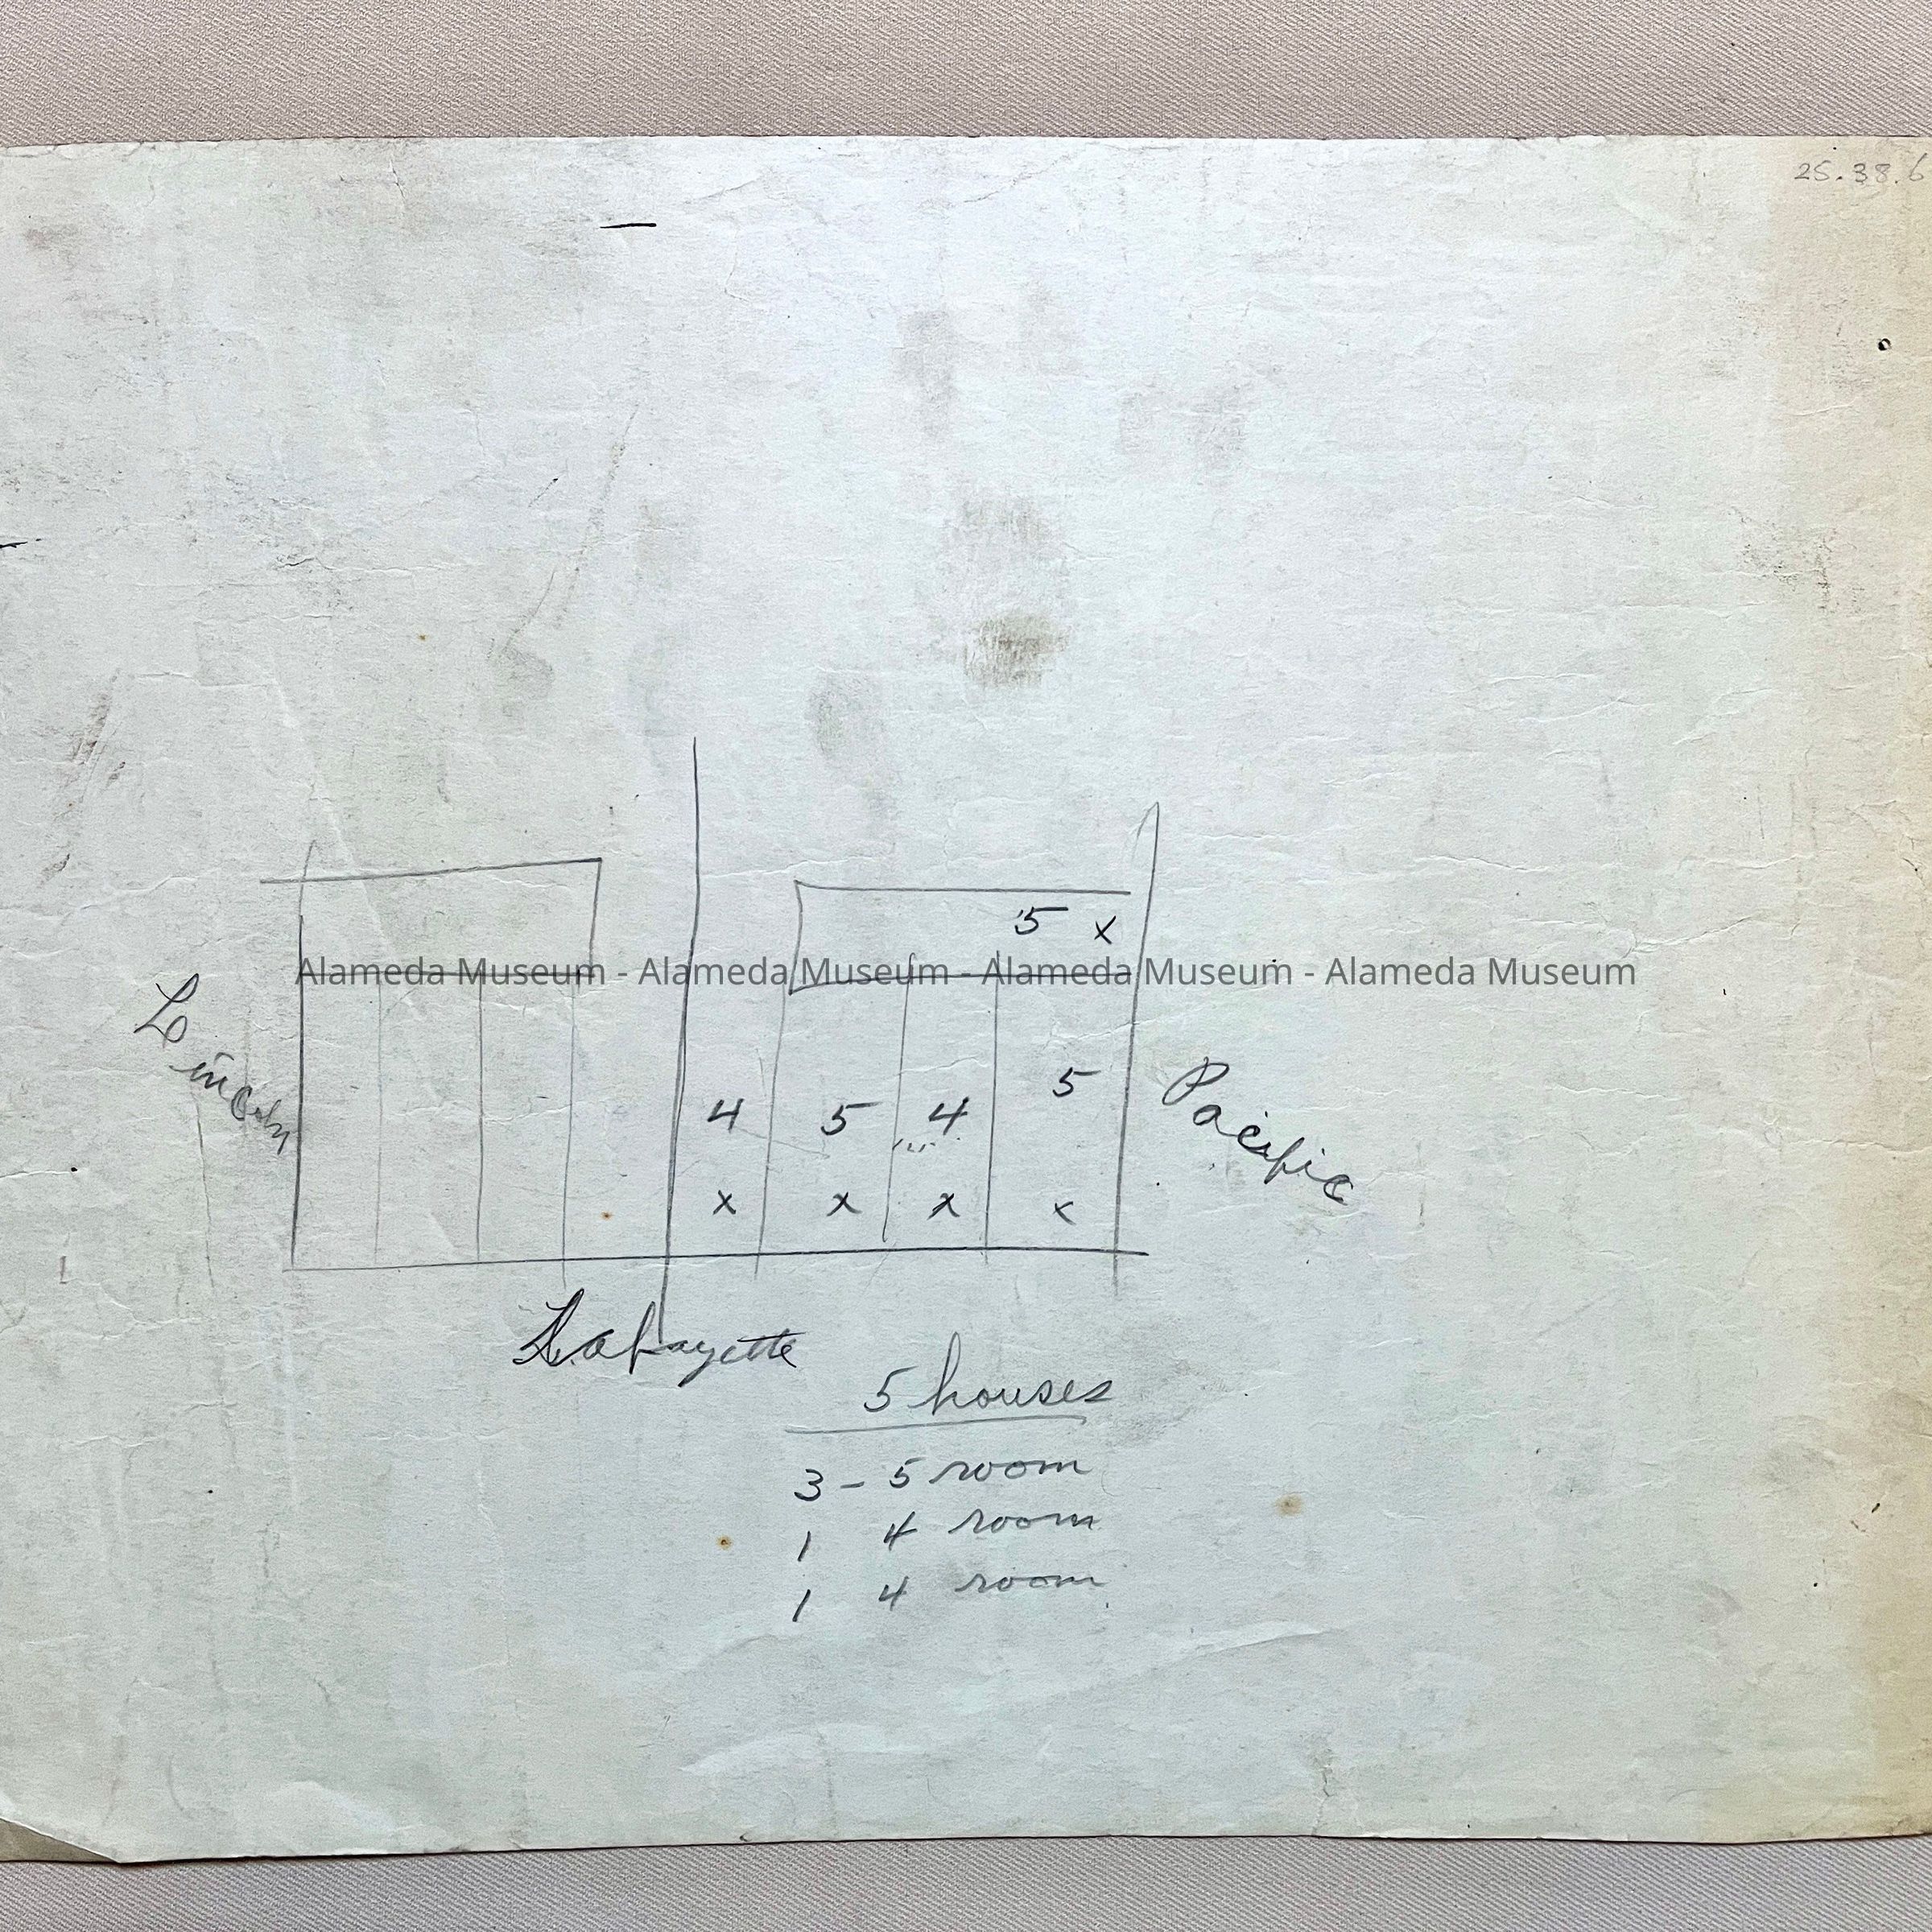 25.38.6
5 x
Alameda Museum - Alameda Museum - Alameda Museum - Alameda Museum
Lincoln
5
Pacific
4 5 4
x x x x
Lafayette
5 houses
3 - 5 room
1 4 room
1 4 room